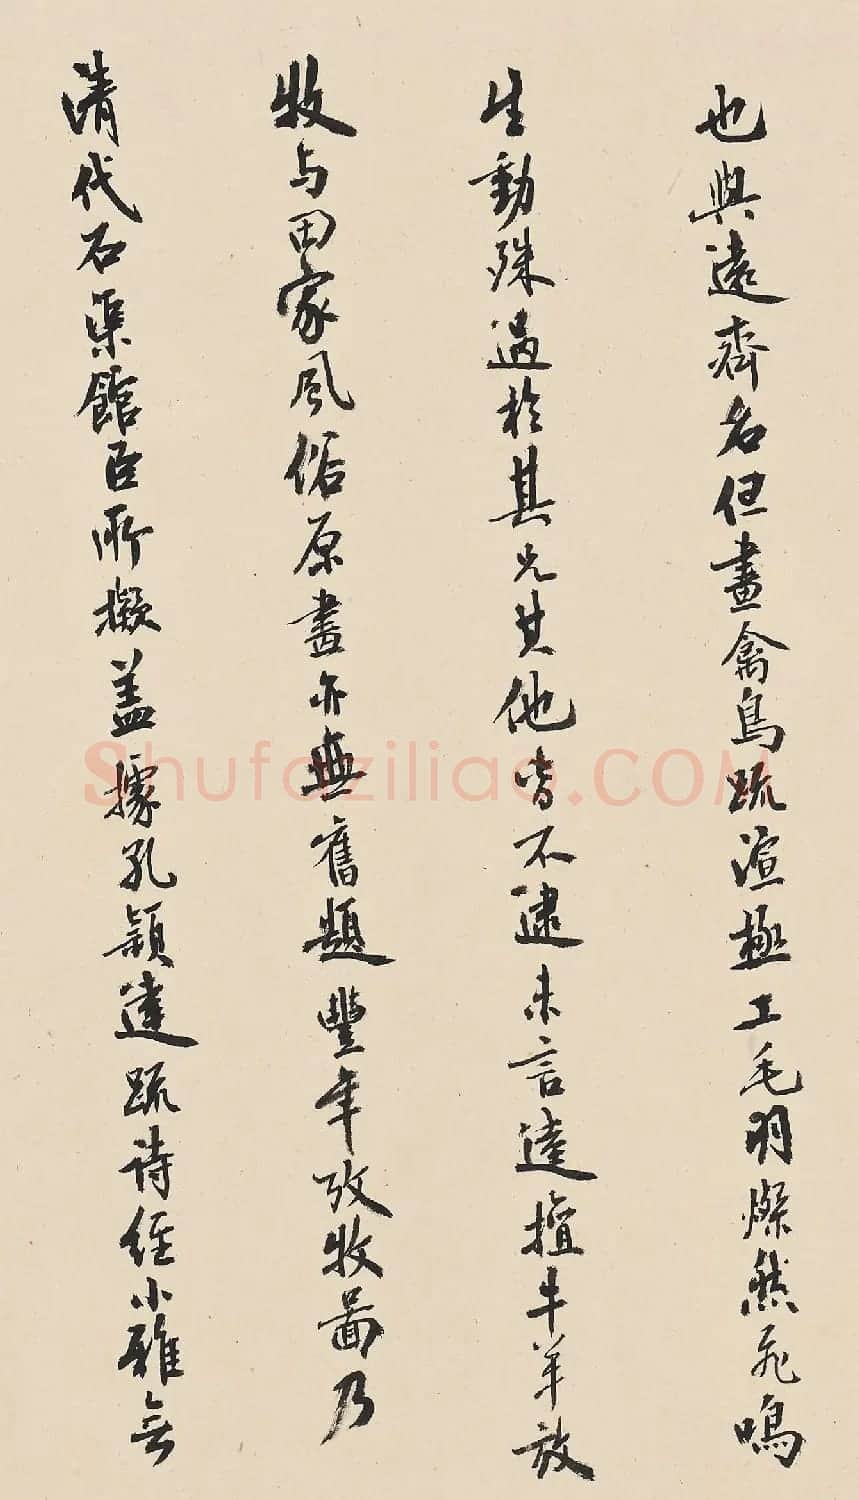 也與遠齊名但畫禽鳥疏渲極工毛羽燦然飛鳴
生動殊過於其兄其他皆不逮未言逵擅牛羊放
牧与田家風俗原畫亦無舊題豐年攷牧啚乃
清代石渠館臣所擬盖據孔穎達疏詩經小雅無
Shufaziliao.COM